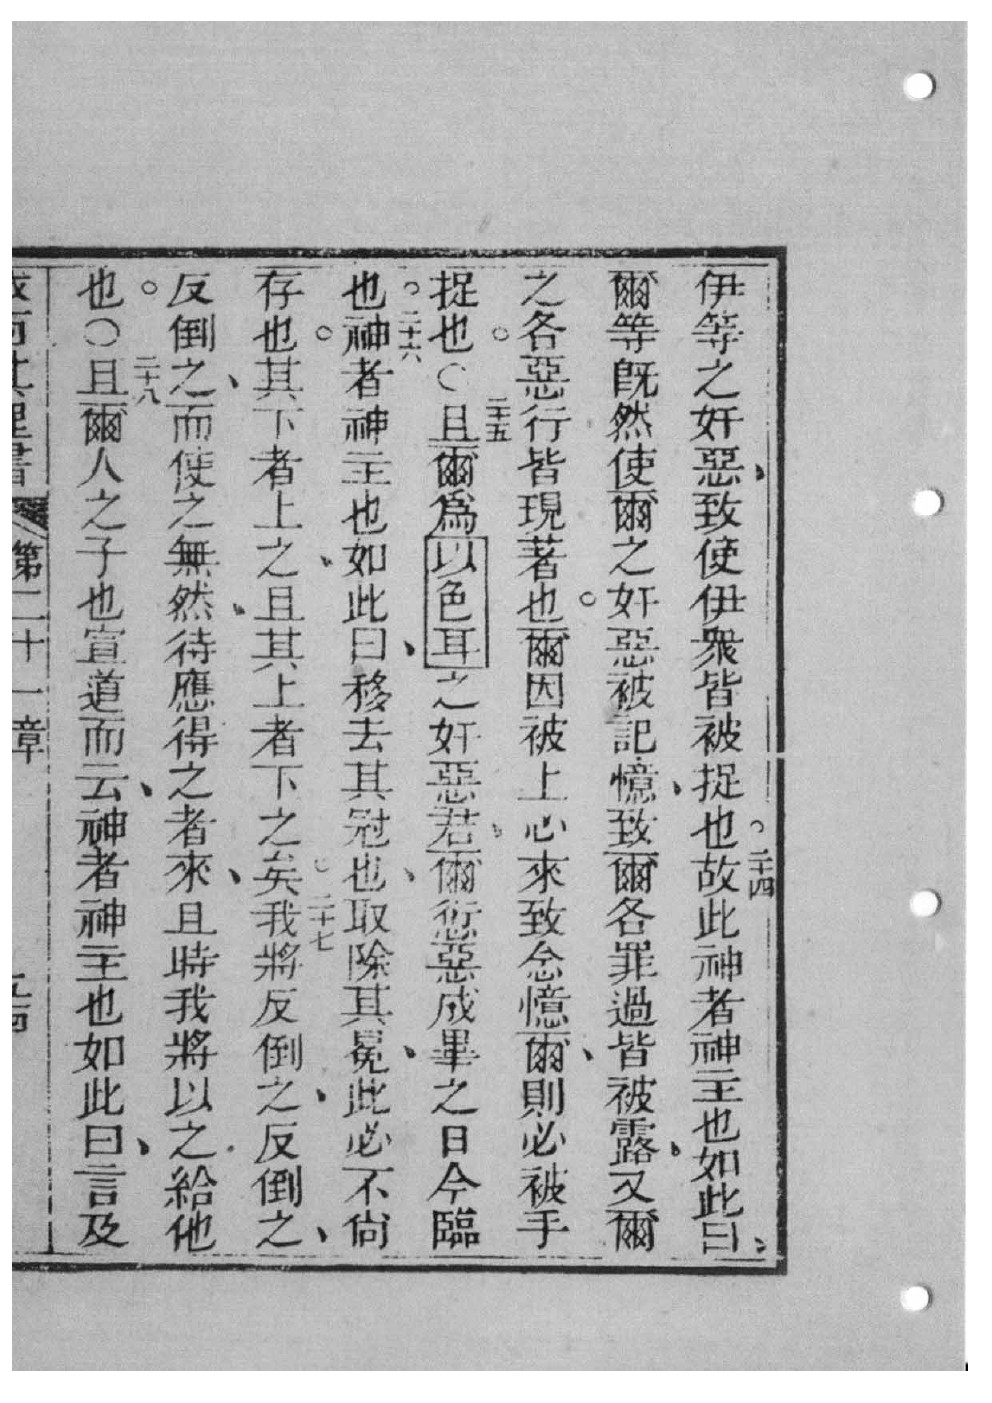 伊等之奸惡、致使伊衆皆被捉也。二十四故此神者神主也如此曰、
爾等既然使爾之奸惡被記憶、致爾各罪過皆被露、又爾
之各惡行皆現著也。爾因被上心來致念憶爾、則必被手
捉也。〇二十五且爾爲以色耳之奸惡君、爾愆惡成畢之日今臨
也。二十六神者神主也如此曰、移去其冠也、取除其冕、此必不尙
存也。其下者上之、且其上者下之矣。二十七我將反倒之、反倒之、
反倒之、而使之無然、待應得之者來、且時我將以之給他
也。〇二十八且爾人之子也宣道而云、神者神主也如此曰、言及
書 第二十一章